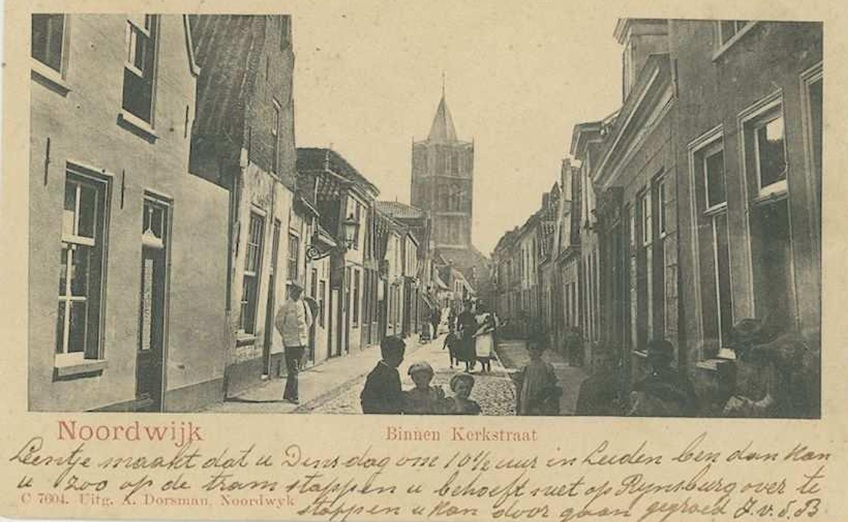 Noordwijk
Binnen Kerkstraat
Leentje maakt dat u Dinsdag om 10½ uur in Leiden ben dan kan
u zoo op de tram stappen u behoeft niet op Rynsburg over te
C 7604. Uitg. A. Dorsman, Noordwyk
stappen u kan door gaan gegroet J. v. d. B